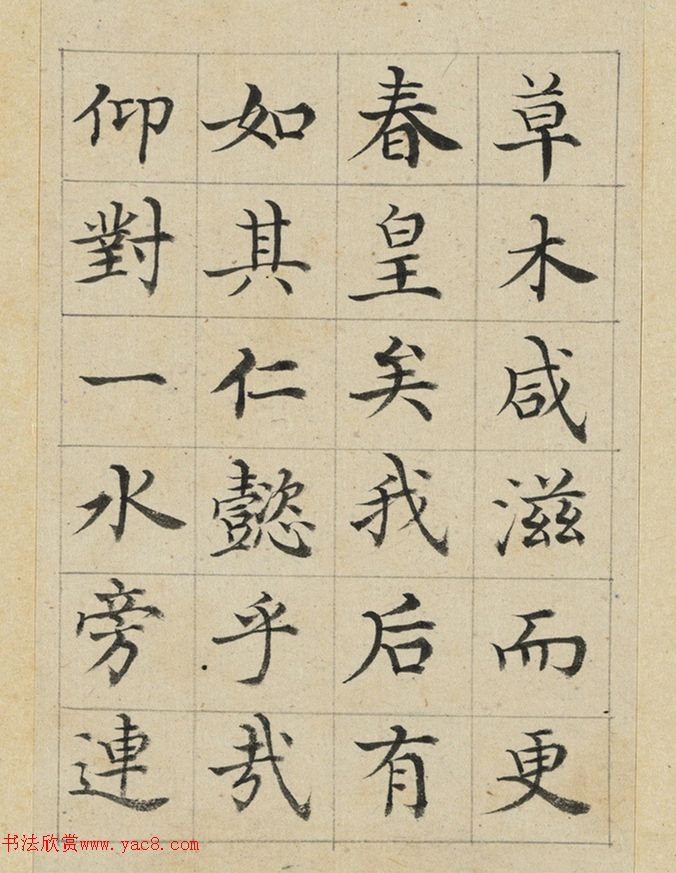 草木咸滋而更
春皇矣我后有
如其仁懿乎哉
仰對一水旁連
书法欣赏www.yac8.com